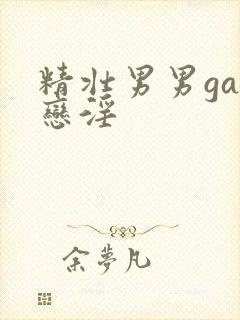 精壯男男ga
戀淫
余夢凡